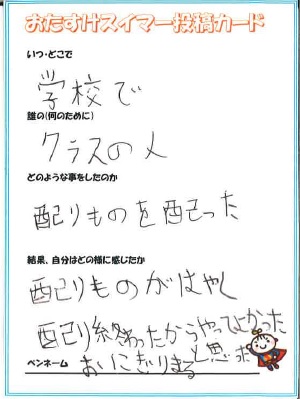 おたすけスイマー投稿カード
いつ・どこで
学校で
誰の(何のために)
クラスの人
どのような事をしたのか
配りものを配った
結果、自分はどの様に感じたか
配りものがはやく
配り終わったからやってよかった
と思った
ペンネーム
おにぎりまる